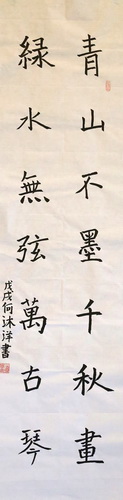 青山不墨千秋畫
緑水無弦萬古琴
戊戌何沐洋書